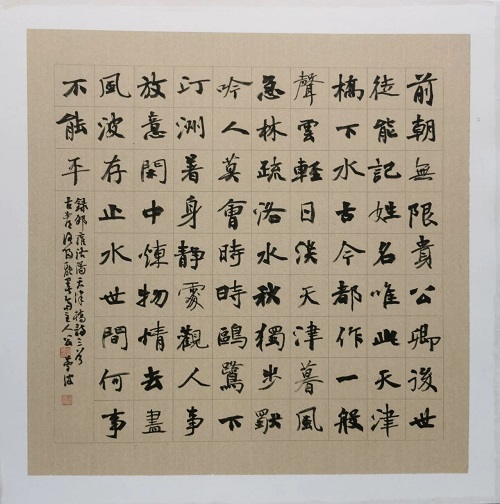 前朝無限貴公卿後世
徒能記姓名唯此天津
橋下水古今都作一般
聲雲輕日淡天津暮風
急林疏洛水秋獨步默
吟人莫會時時鷗鷺下
汀洲着身靜處觀人事
放意閑中煉物情去盡
風波存止水世間何事
不能平
錄邵雍洛陽天津橋詩三首
主人